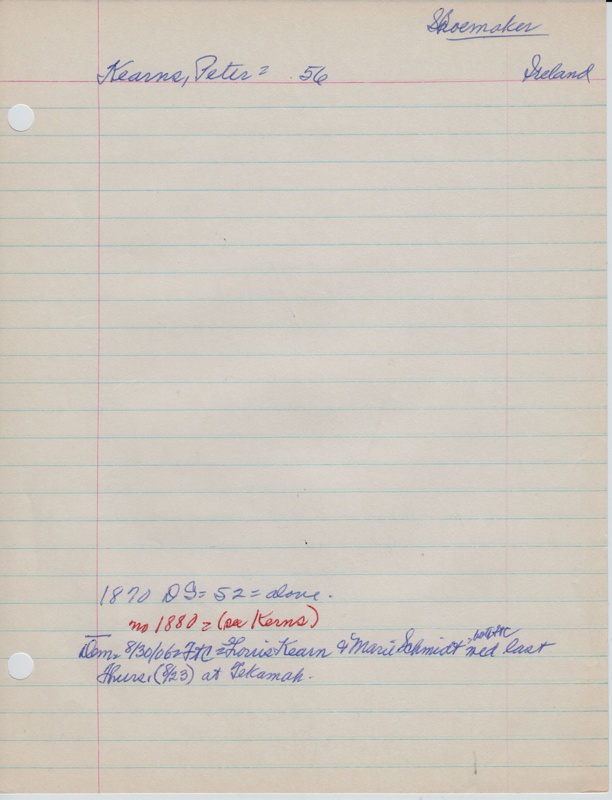 Shoemaker
Kearns, Peter = 56 Ireland
1870 DG = 52 = alone.
no 1880 = (see Kerns)
Dem. 8/30/06 = FtC = Louis Kearn & Marie Schmidt, both FtC med last
Thurs. (8/23) at Tekamah.